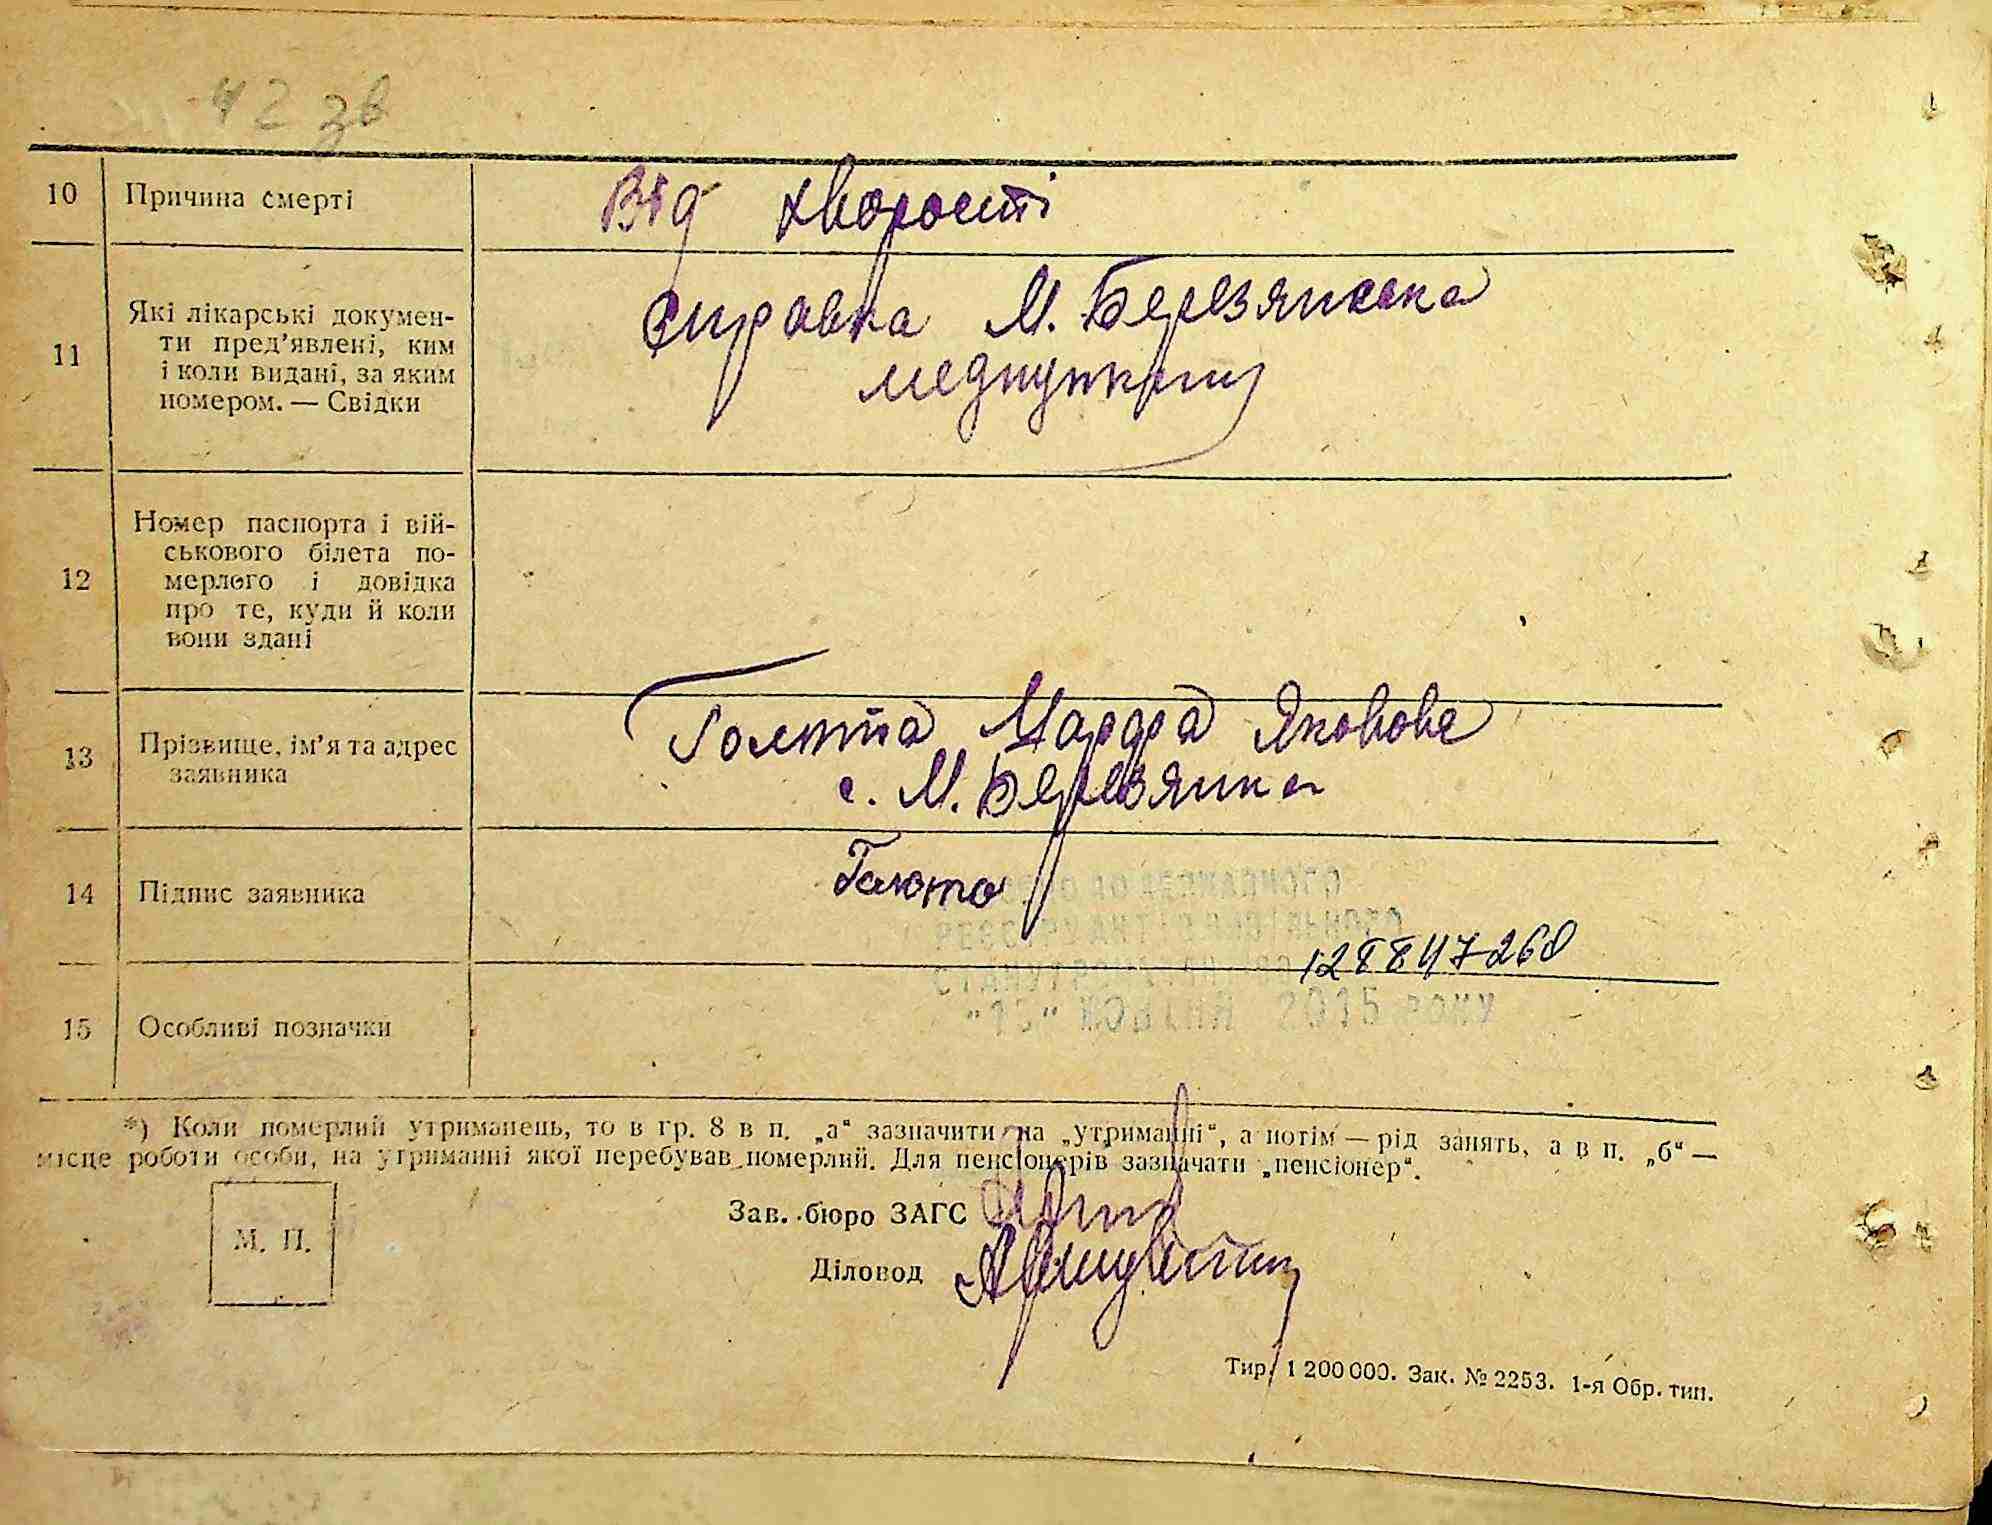 42 зв
10 Причина смерті Від хворости
11 Які лікарські докумен-
ти пред'явлені, ким
і коли видані, за яким
номером. — Свідки
справка М. Березянска
медпункту
12 Номер паспорта і вій-
ськового білета по-
мерлого і довідка
про те, куди й коли
вони здані
13 Прізвище, ім'я та адрес
заявника
Голота Марфа Якововя
с. М. Березянка
14 Підпис заявника Голото
128847260
15 Особливі позначки
ДО ДЕРЖАВНОГО
РЕЄСТРУ АКТІВ ЦИВІЛЬНОГО
СТАНУ
ЖОВТНЯ 2015 РОКУ
*) Коли померлий утриманець, то в гр. 8 в п. „а“ зазначити на „утриманні“, а потім — рід занять, а в п. „б“ —
місце роботи особи, на утриманні якої перебував померлий. Для пенсіонерів зазначати „пенсіонер“.
Зав. бюро ЗАГС
М. П.
Діловод
Тир. 1 200 000. Зак. № 2253. 1-я Обр. тип.